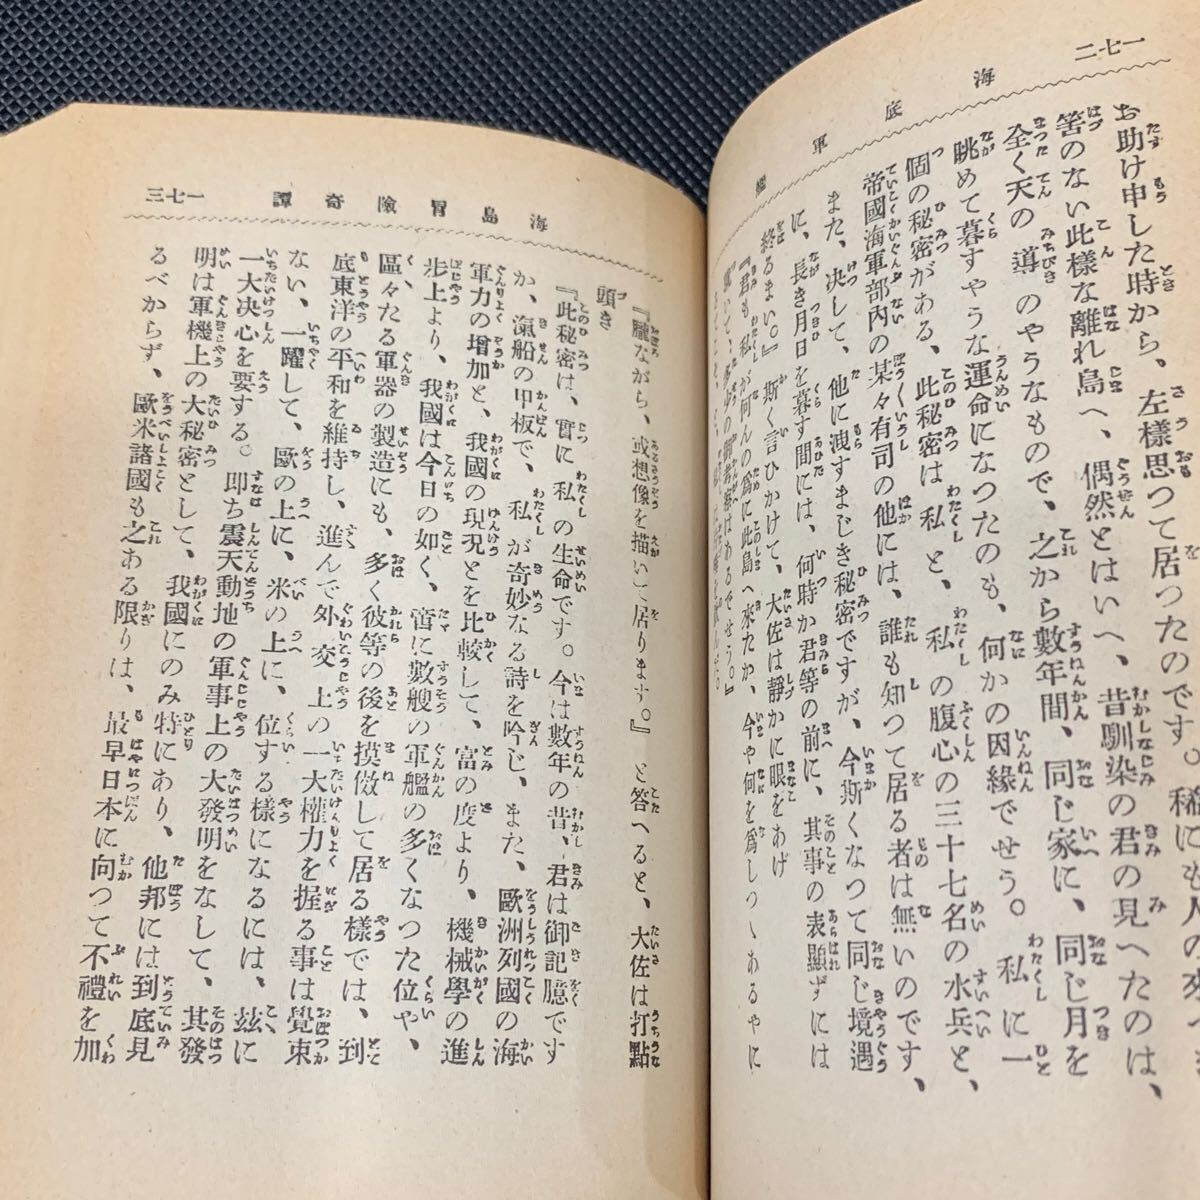 一七二
海底軍艦
お助け申した時から、左樣思つて居つたのです。稀にも人の來
筈のない此樣な離れ島へ、偶然とはいへ、昔馴染の君の見へたのは、
全く天の導のやうなもので、之から數年間、同じ家に、同じ月を
眺めて暮すやうな運命になつたのも、何かの因緣でせう。私に一
個の秘密がある、此秘密は私と、私の腹心の三十七名の水兵と、
帝國海軍部內の某々有司の他には、誰も知つて居る者は無いのです、
また、决して、他に洩すまじき秘密ですが、今斯くなつて同じ境遇
に、長き月日を暮す間には、何時か君等の前に、其事の表顯ずには
終るまい。』斯く言ひかけて、大佐は靜かに眼をあげ
『君も私が何んの爲に此島へ來たか、今や何を爲しつゝあるやに
就いて、多少の御考察はあるでせう。』
一七三
海島冒險奇譚
『朧ながら、或想像を描いて居ります。』と答へると、大佐は打點
頭き
『此秘密は、實に私の生命です。今は數年の昔、君は御記臆です
か、滊船の甲板で、私が奇妙なる詩を吟じ、また、歐洲列國の海
軍力の增加と、我國の現况とを比較して、富の度より、機械學の進
步上より、我國は今日の如く、啻に數艘の軍艦の多くなつた位や、
區々たる軍器の製造にも、多く彼等の後を摸傚して居る樣では、到
底東洋の平和を維持し、進んで外交上の一大權力を握る事は覺束
ない、一躍して、歐の上に、米の上に、位する樣になるには、玆に
一大决心を要する。卽ち震天動地の軍事上の大發明をなして、其發
明は軍機上の大秘密として、我國にのみ特にあり、他邦には到底見
るべからず、歐米諸國も之ある限りは、最早日本に向つて不禮を加